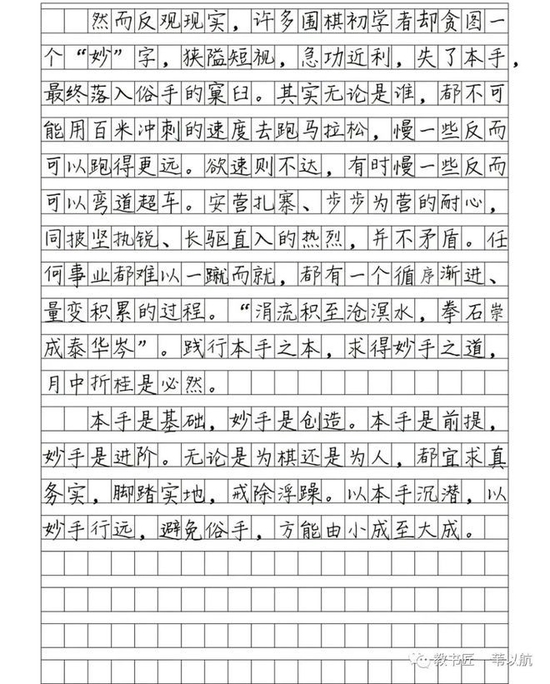 然而反观现实，许多围棋初学者却贪图一
个“妙”字，狭隘短视，急功近利，失了本手，
最终落入俗手的窠臼。其实无论是谁，都不可
能用百米冲刺的速度去跑马拉松，慢一些反而
可以跑得更远。欲速则不达，有时慢一些反而
可以弯道超车。安营扎寨、步步为营的耐心，
同披坚执锐、长驱直入的热烈，并不矛盾。任
何事业都难以一蹴而就，都有一个循序渐进、
量变积累的过程。“涓流积至沧溟水，拳石崇
成泰华岑”。践行本手之本，求得妙手之道，
月中折桂是必然。
本手是基础，妙手是创造。本手是前提，
妙手是进阶。无论是为棋还是为人，都宜求真
务实，脚踏实地，戒除浮躁。以本手沉潜，以
妙手行远，避免俗手，方能由小成至大成。
教书匠 苇以航